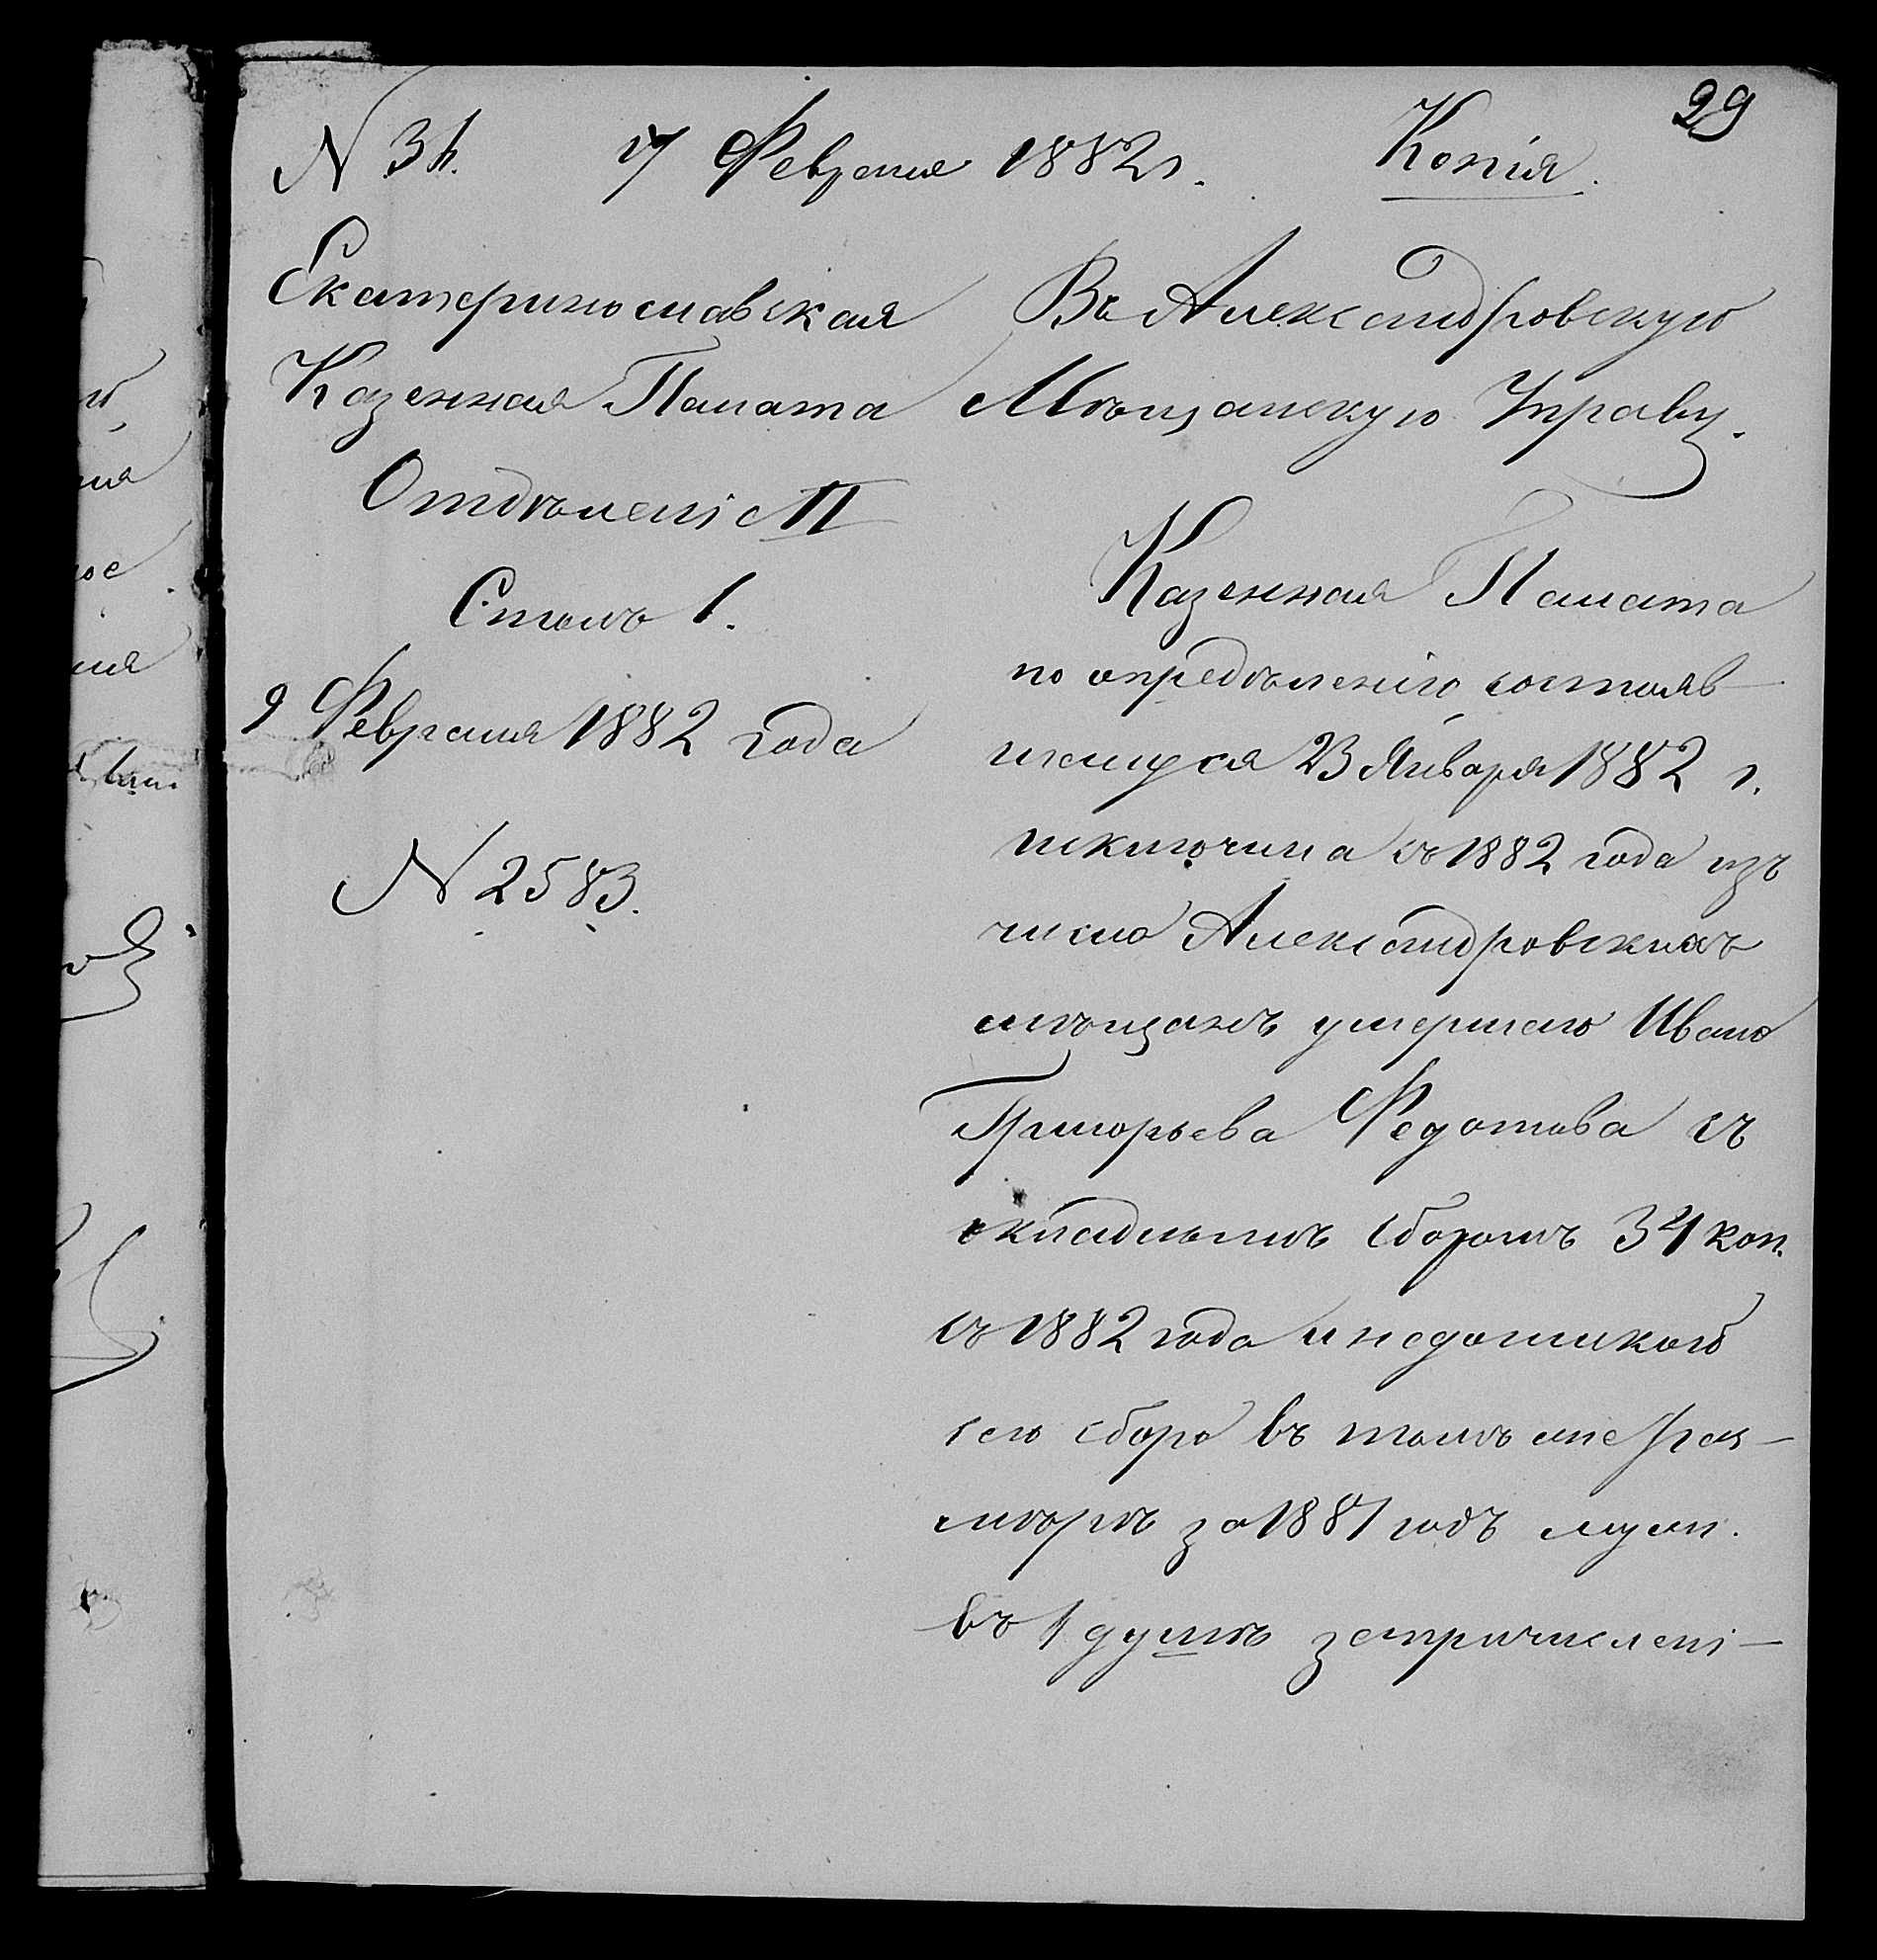 29
N 34. 17 Февраля 1882 г. Копія.
Екатеринославская
Казенная Палата
Отдѣленіе II
Столъ 1.
9 Февраля 1882 года
N 2583.
Въ Александровскую
Мѣщанскую Управу.
Казенная Палата
по опредѣленію состояв-
шемуся 23 Января 1882 г.
исключила съ 1882 года изъ
числа Александровскихъ
мѣщанъ умершаго Ивана
Григорьева Федотова съ
окладнымъ сборомъ 34 коп.
съ 1882 года и недоимкою
сего сбора въ томъ же раз-
мѣрѣ за 1881 годъ
въ 1 душѣ запричислені-